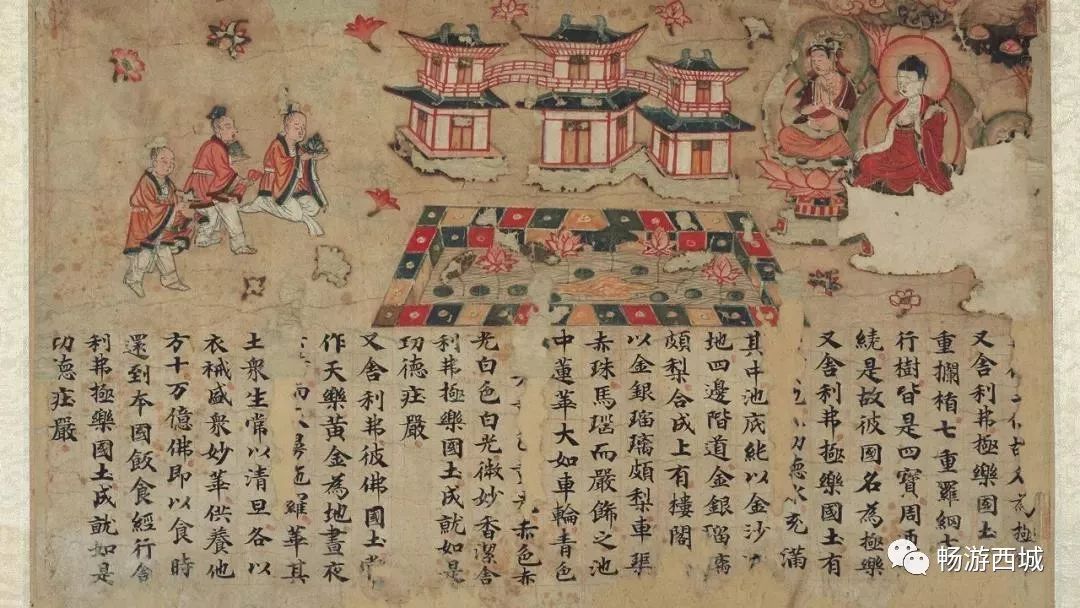 極
又舍利弗極樂國土
重攔楯七重羅網七
行樹皆是四寶周
繞是故彼國名為極樂
又舍利弗極樂國土有
功德水充滿
其中池底純以金沙
地四邊階道金銀瑠璃
頗梨合成上有樓閣
以金銀瑠璃頗梨車璖
赤珠馬瑙而嚴飾之池
中蓮華大如車輪青色
赤色赤
光白色白光微妙香潔舍
利弗極樂國土成就如是
功德莊嚴
又舍利弗彼佛國土常
作天樂黃金為地晝夜
羅華其
土衆生常以清旦各以
衣裓盛衆妙華供養他
方十万億佛即以食時
還到本國飯食經行舍
利弗極樂國土成就如是
功德莊嚴
畅游西城